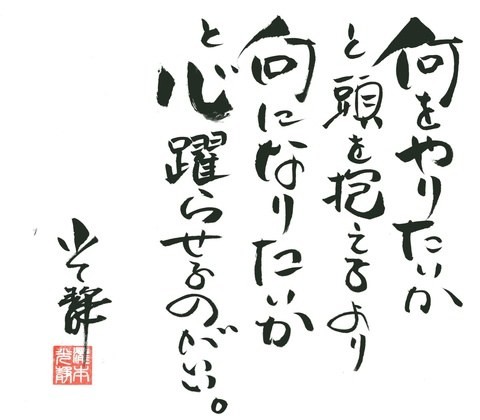 何をやりたいか
と頭を抱えるより
何になりたいか
と心躍らせるのがいい。
光静
瀧本
光静